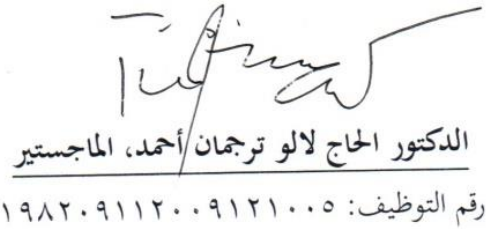 الدكتور الحاج لالو ترجمان أحمد، الماجستير
رقم التوظيف: ١٩٨٢٠٩١١٢٠٠٩١٢١٠٠٥